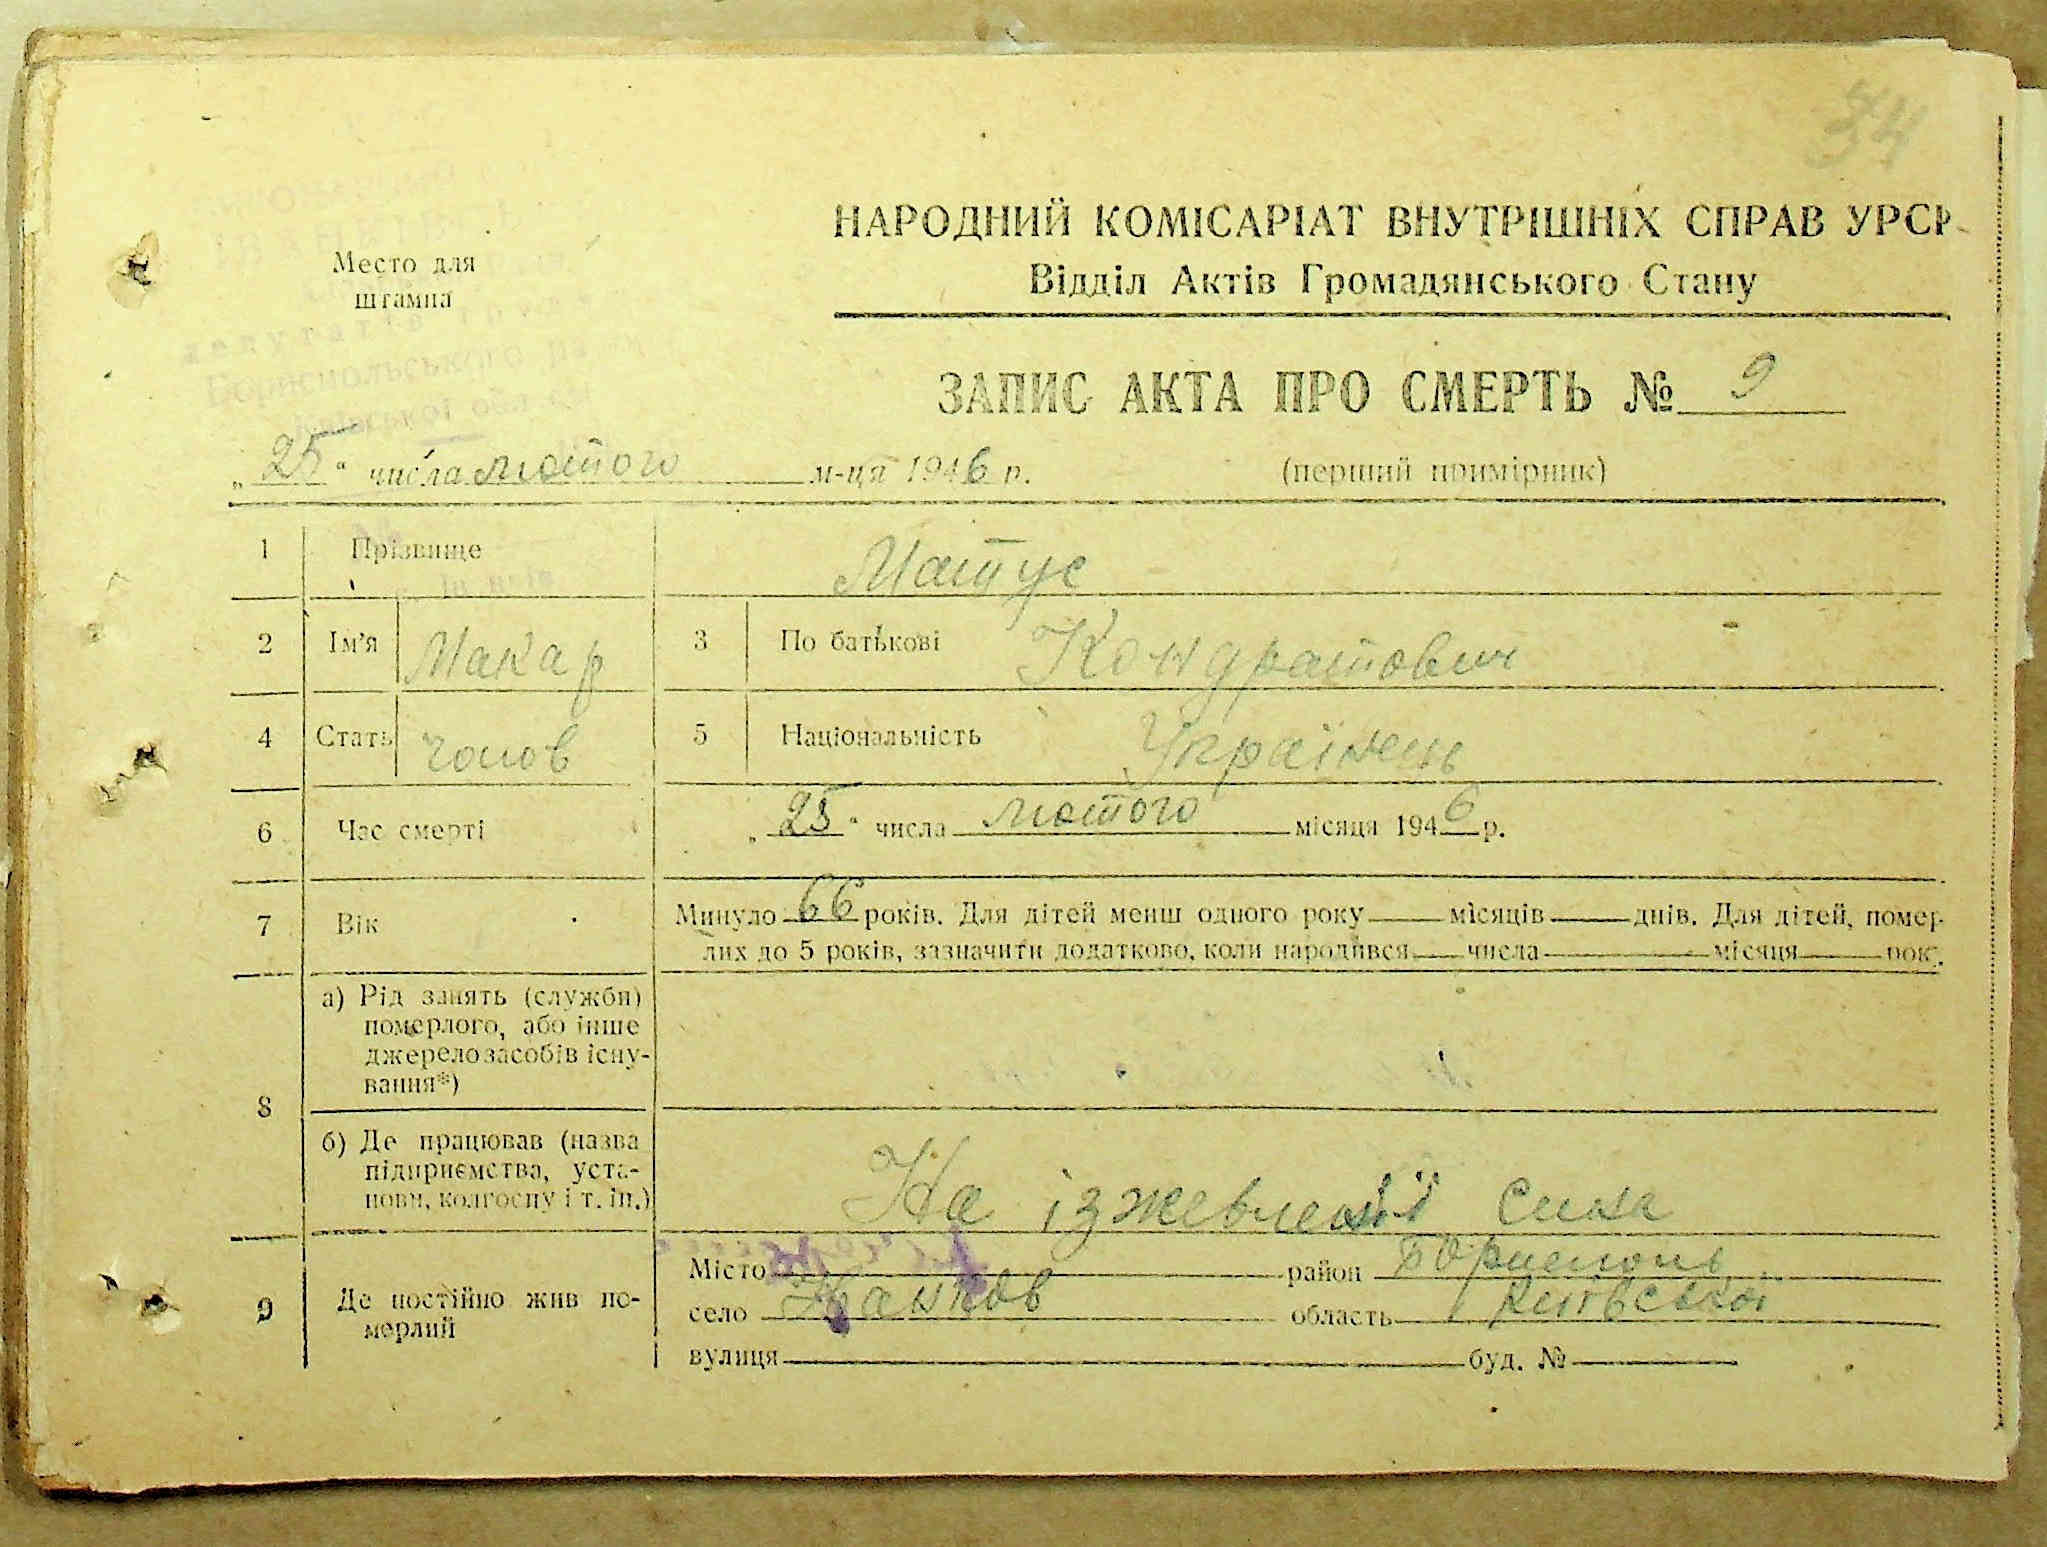 34
НАРОДНИЙ КОМІСАРІАТ ВНУТРІШНІХ СПРАВ УРСР
Відділ Актів Громадянського Стану
Место для
штампа
депутатів
Бориспольського
ЗАПИС АКТА ПРО СМЕРТЬ № 9
„25“ числа лютого м-ця 1946 р. (перший примірник)
1 Прізвище Матус
2 Ім'я Макар 3 По батькові Кондратович
4 Стать чолов 5 Національність Українець
6 Час смерті „25“ числа лютого місяця 1946 р.
7 Вік Минуло 66 років. Для дітей менш одного року місяців днів. Для дітей, помер-
лих до 5 років, зазначити додатково, коли народився числа місяця рок.
8 а) Рід занять (служби)
померлого, або інше
джерело засобів існу-
вання*)
б) Де працював (назва
підприємства, уста-
нови, колгоспу і т. ін.) На іжевленії сина
9 Де постійно жив по-
мерлий
Місто район Бориспопь
село область Київської
вулиця буд. №